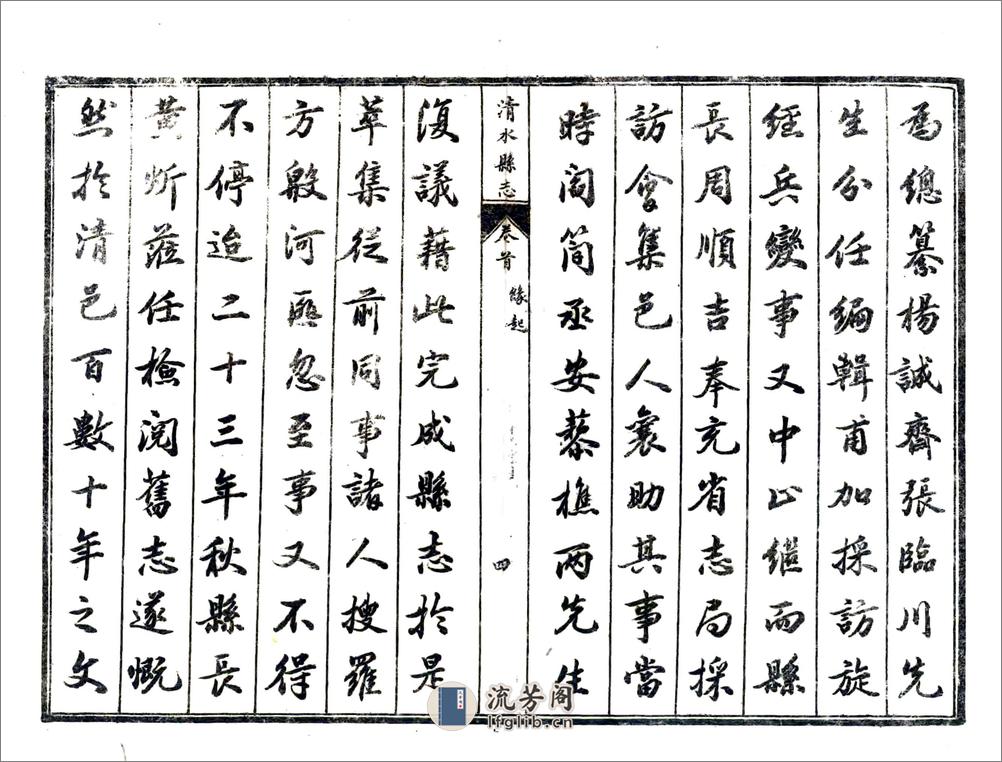 為總纂楊誠齋張臨川先
生分任編輯甫加採訪旋
經兵變事又中止繼而縣
長周順吉奉充省志局採
訪會集邑人襄助其事當
時閻簡丞安藜樵兩先生
清水縣志 卷首 緣起 四
復議藉此完成縣志於是
萃集從前同事諸人搜羅
方殷河匪忽至事又不得
不停迨二十三年秋縣長
黄炘蒞任檢閱舊志遂慨
然於清邑百數十年之文
流芳阁
lfglib.cn